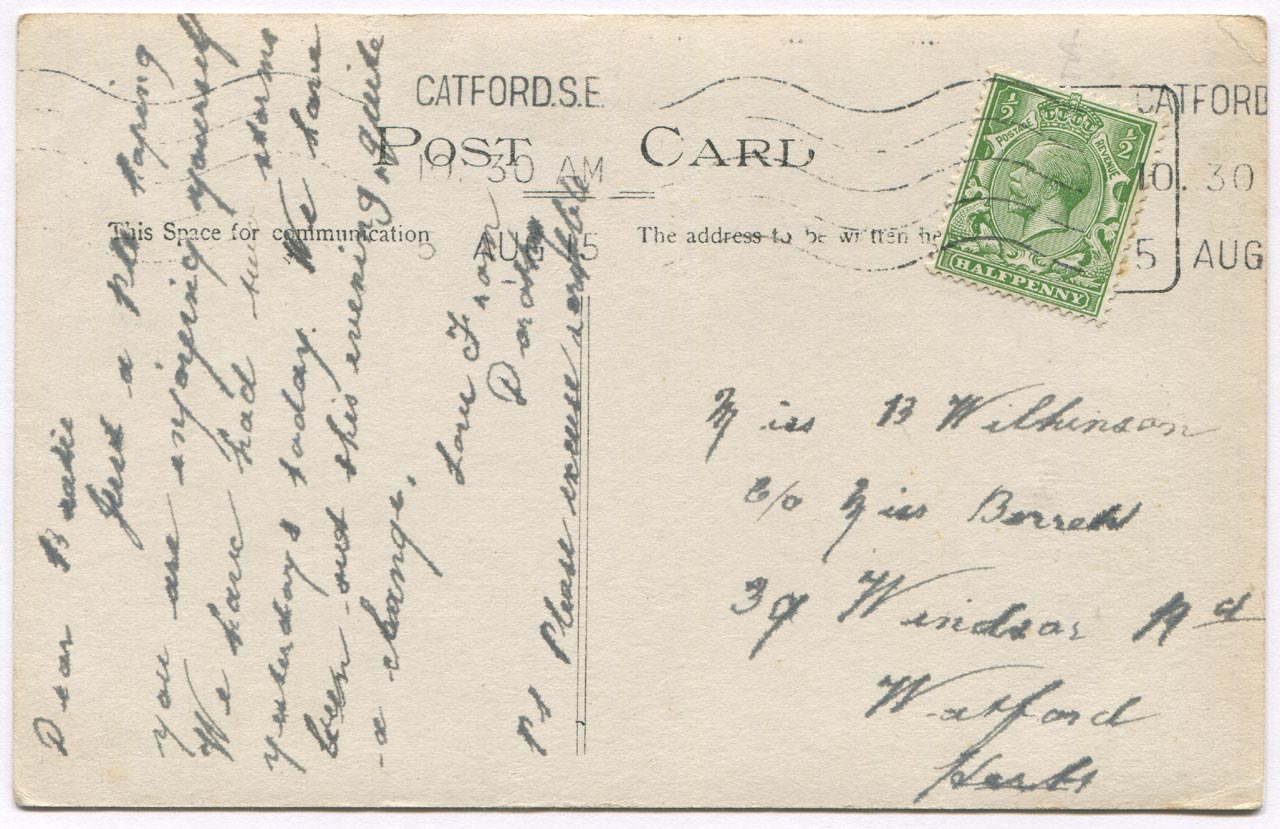 CATFORD.S.E.
10.30 AM
5 AUG 15
POST CARD
This Space for communication
The address to be written he
½ ½
POSTAGE REVENUE
HALFPENNY
CATFORD
10.30
5 AUG
Dear
Just a hoping
you are enjoying yourself
We have had two storms
yesterday & today. We have
been out this evening quite
a change.
Love From
Dorothy
PS Please excuse scribble
Miss B Wilkinson
C/o Miss
39 Windsor Rd
Watford
Herts